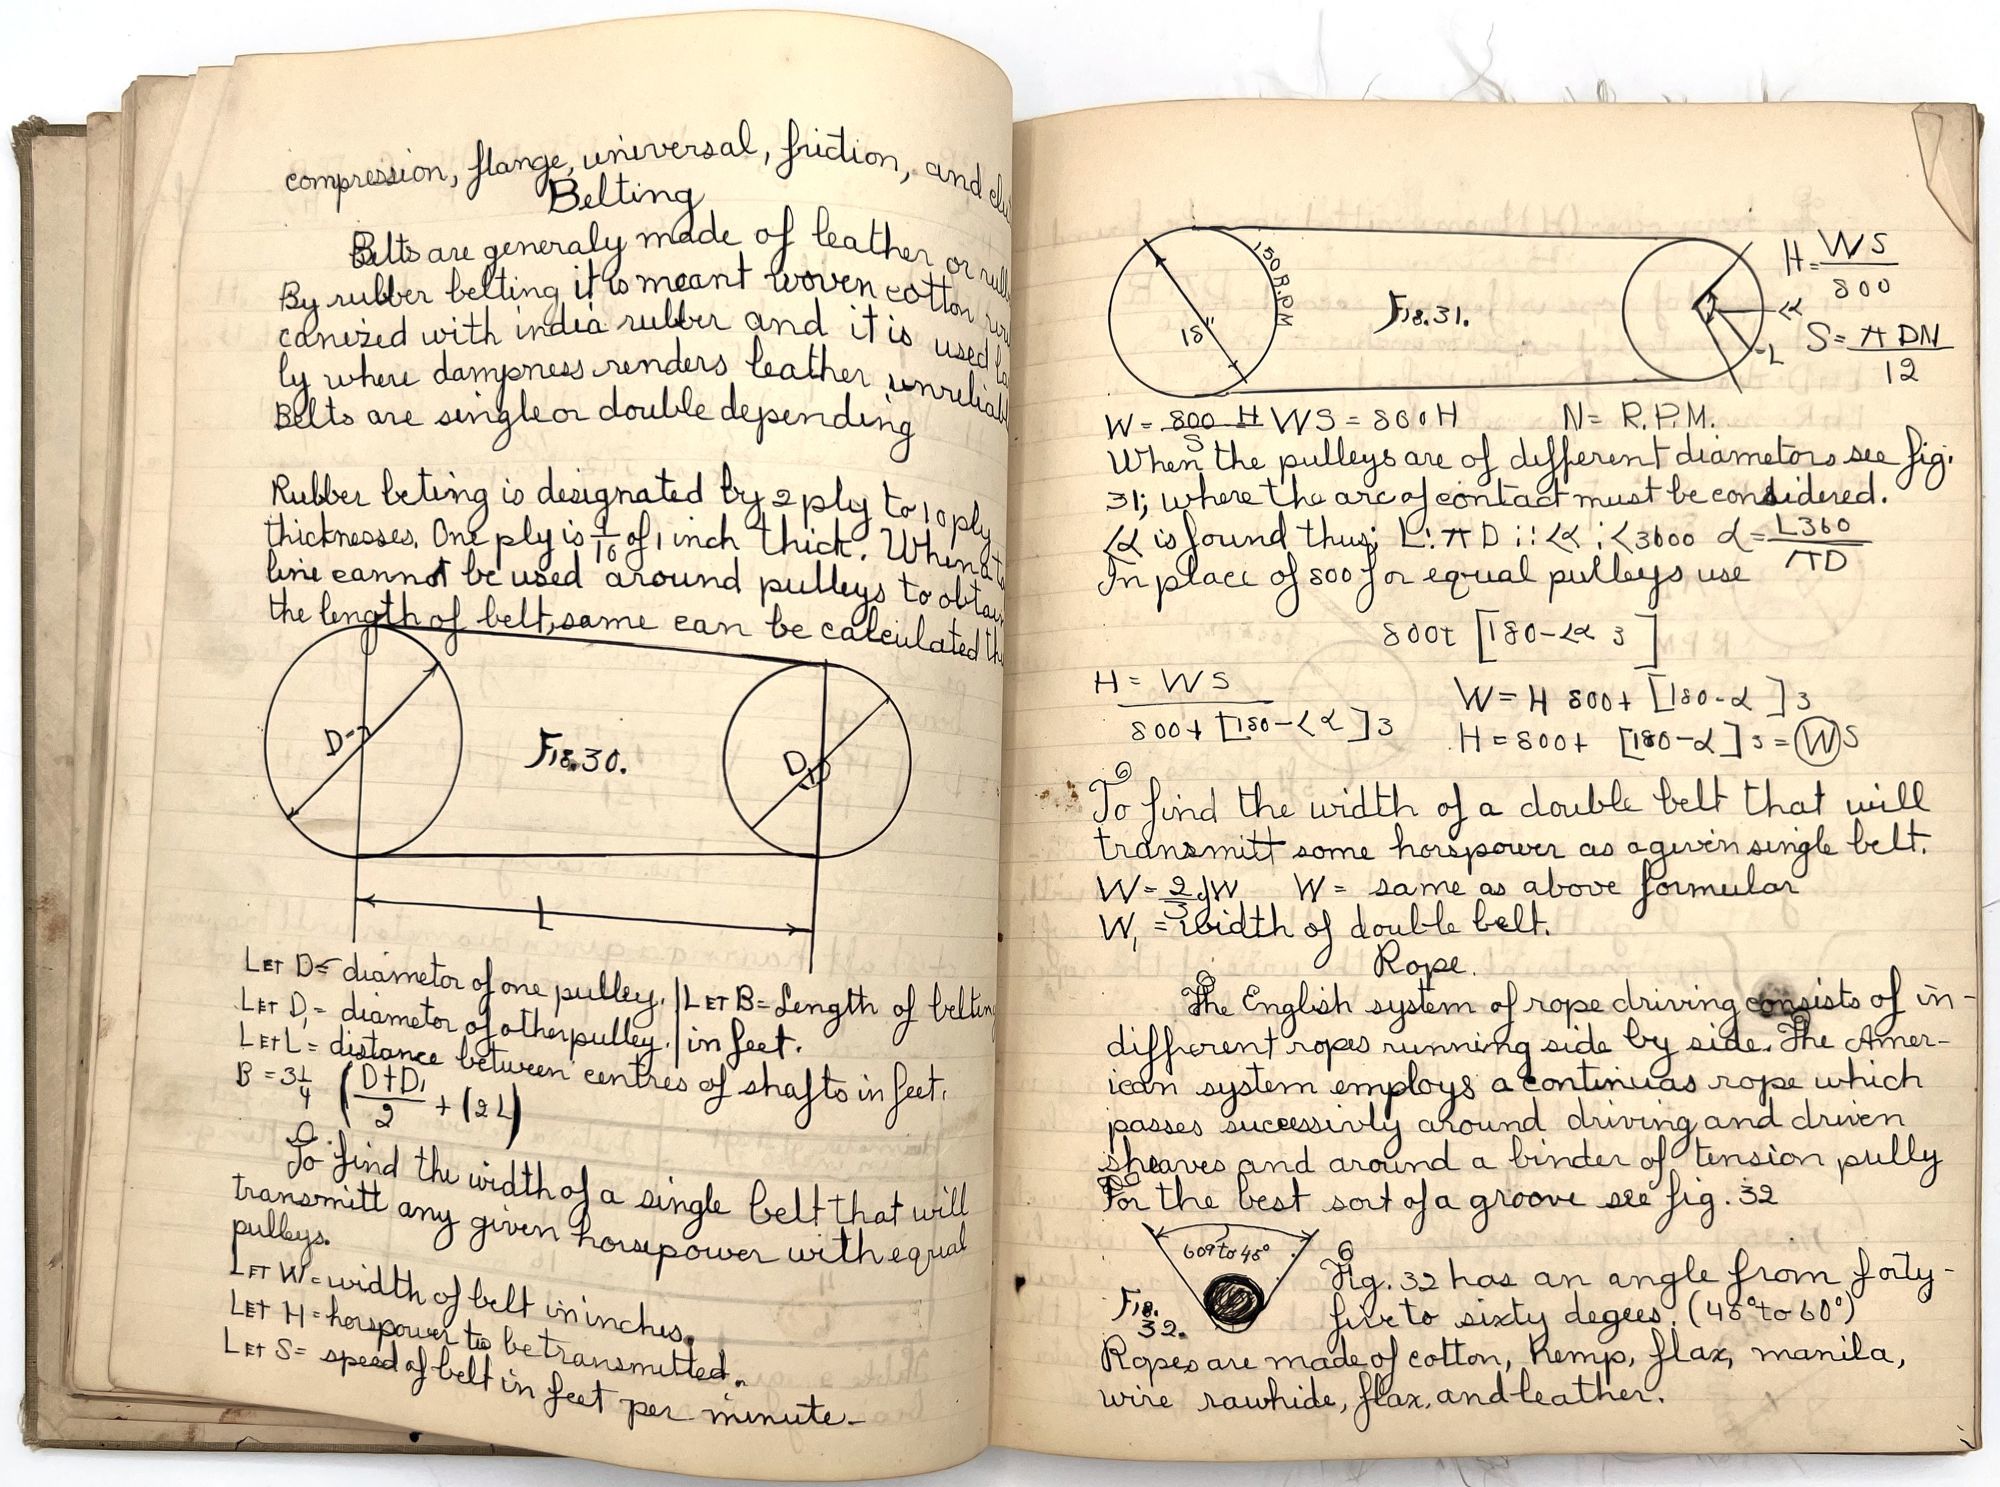 compression, flange, universal, friction, and
Belting
Belts are generaly made of leather or
By rubber belting it is meant woven cotton
canized with india rubber and it is used
ly where dampness renders leather unreliabl
Belts are single or double depending
Rubber beting is designated by 2 ply to 10 ply
thicknesses. One ply is 1/16 of 1 inch thick. When a
line cannot be used around pulleys to obtain
the length of belt, same can be calculated th
D
Fig. 30.
D1
L
LET D = diametor of one pulley. | LET B = Length of belting
LET D1 = diametor of other pulley. | in feet.
LET L = distance between centres of shafts in feet.
B = 3 1/4 (D+D1/2 + (2L)
To find the width of a single belt that will
transmitt any given horsepower with equal
pulleys.
LET W = width of belt in inches.
LET H = horspower to be transmitted.
LET S = speed of belt in feet per minute.
150 R.P.M
18"
Fig. 31.
<α
L
H = WS/800
S = π DN/12
W = 800 H/S WS = 800H N = R.P.M.
When the pulleys are of different diametors see fig.
31; where the arc of contact must be considered.
<α is found thus; L : π D :: <α : <3600 α = L360/πD
In place of 800 for equal pulleys use
800+ [180-<α 3]
H = WS/800+ [180-<α]3
W = H 800+ [180-α]3
H = 800+ [180-α]3 = WS
To find the width of a double belt that will
transmitt some horspower as a given single belt.
W = 2/3 W W = same as above formular
W1 = width of double belt.
Rope.
The English system of rope driving consists of in-
different ropes running side by side. The Amer-
ican system employs a continuas rope which
passes successivly around driving and driven
sheaves and around a binder of tension pully
For the best sort of a groove see fig. 32
60° to 45°
Fig.
32.
Fig. 32 has an angle from forty-
five to sixty degees. (45° to 60°)
Ropes are made of cotton, hemp, flax, manila,
wire rawhide, flax, and leather.